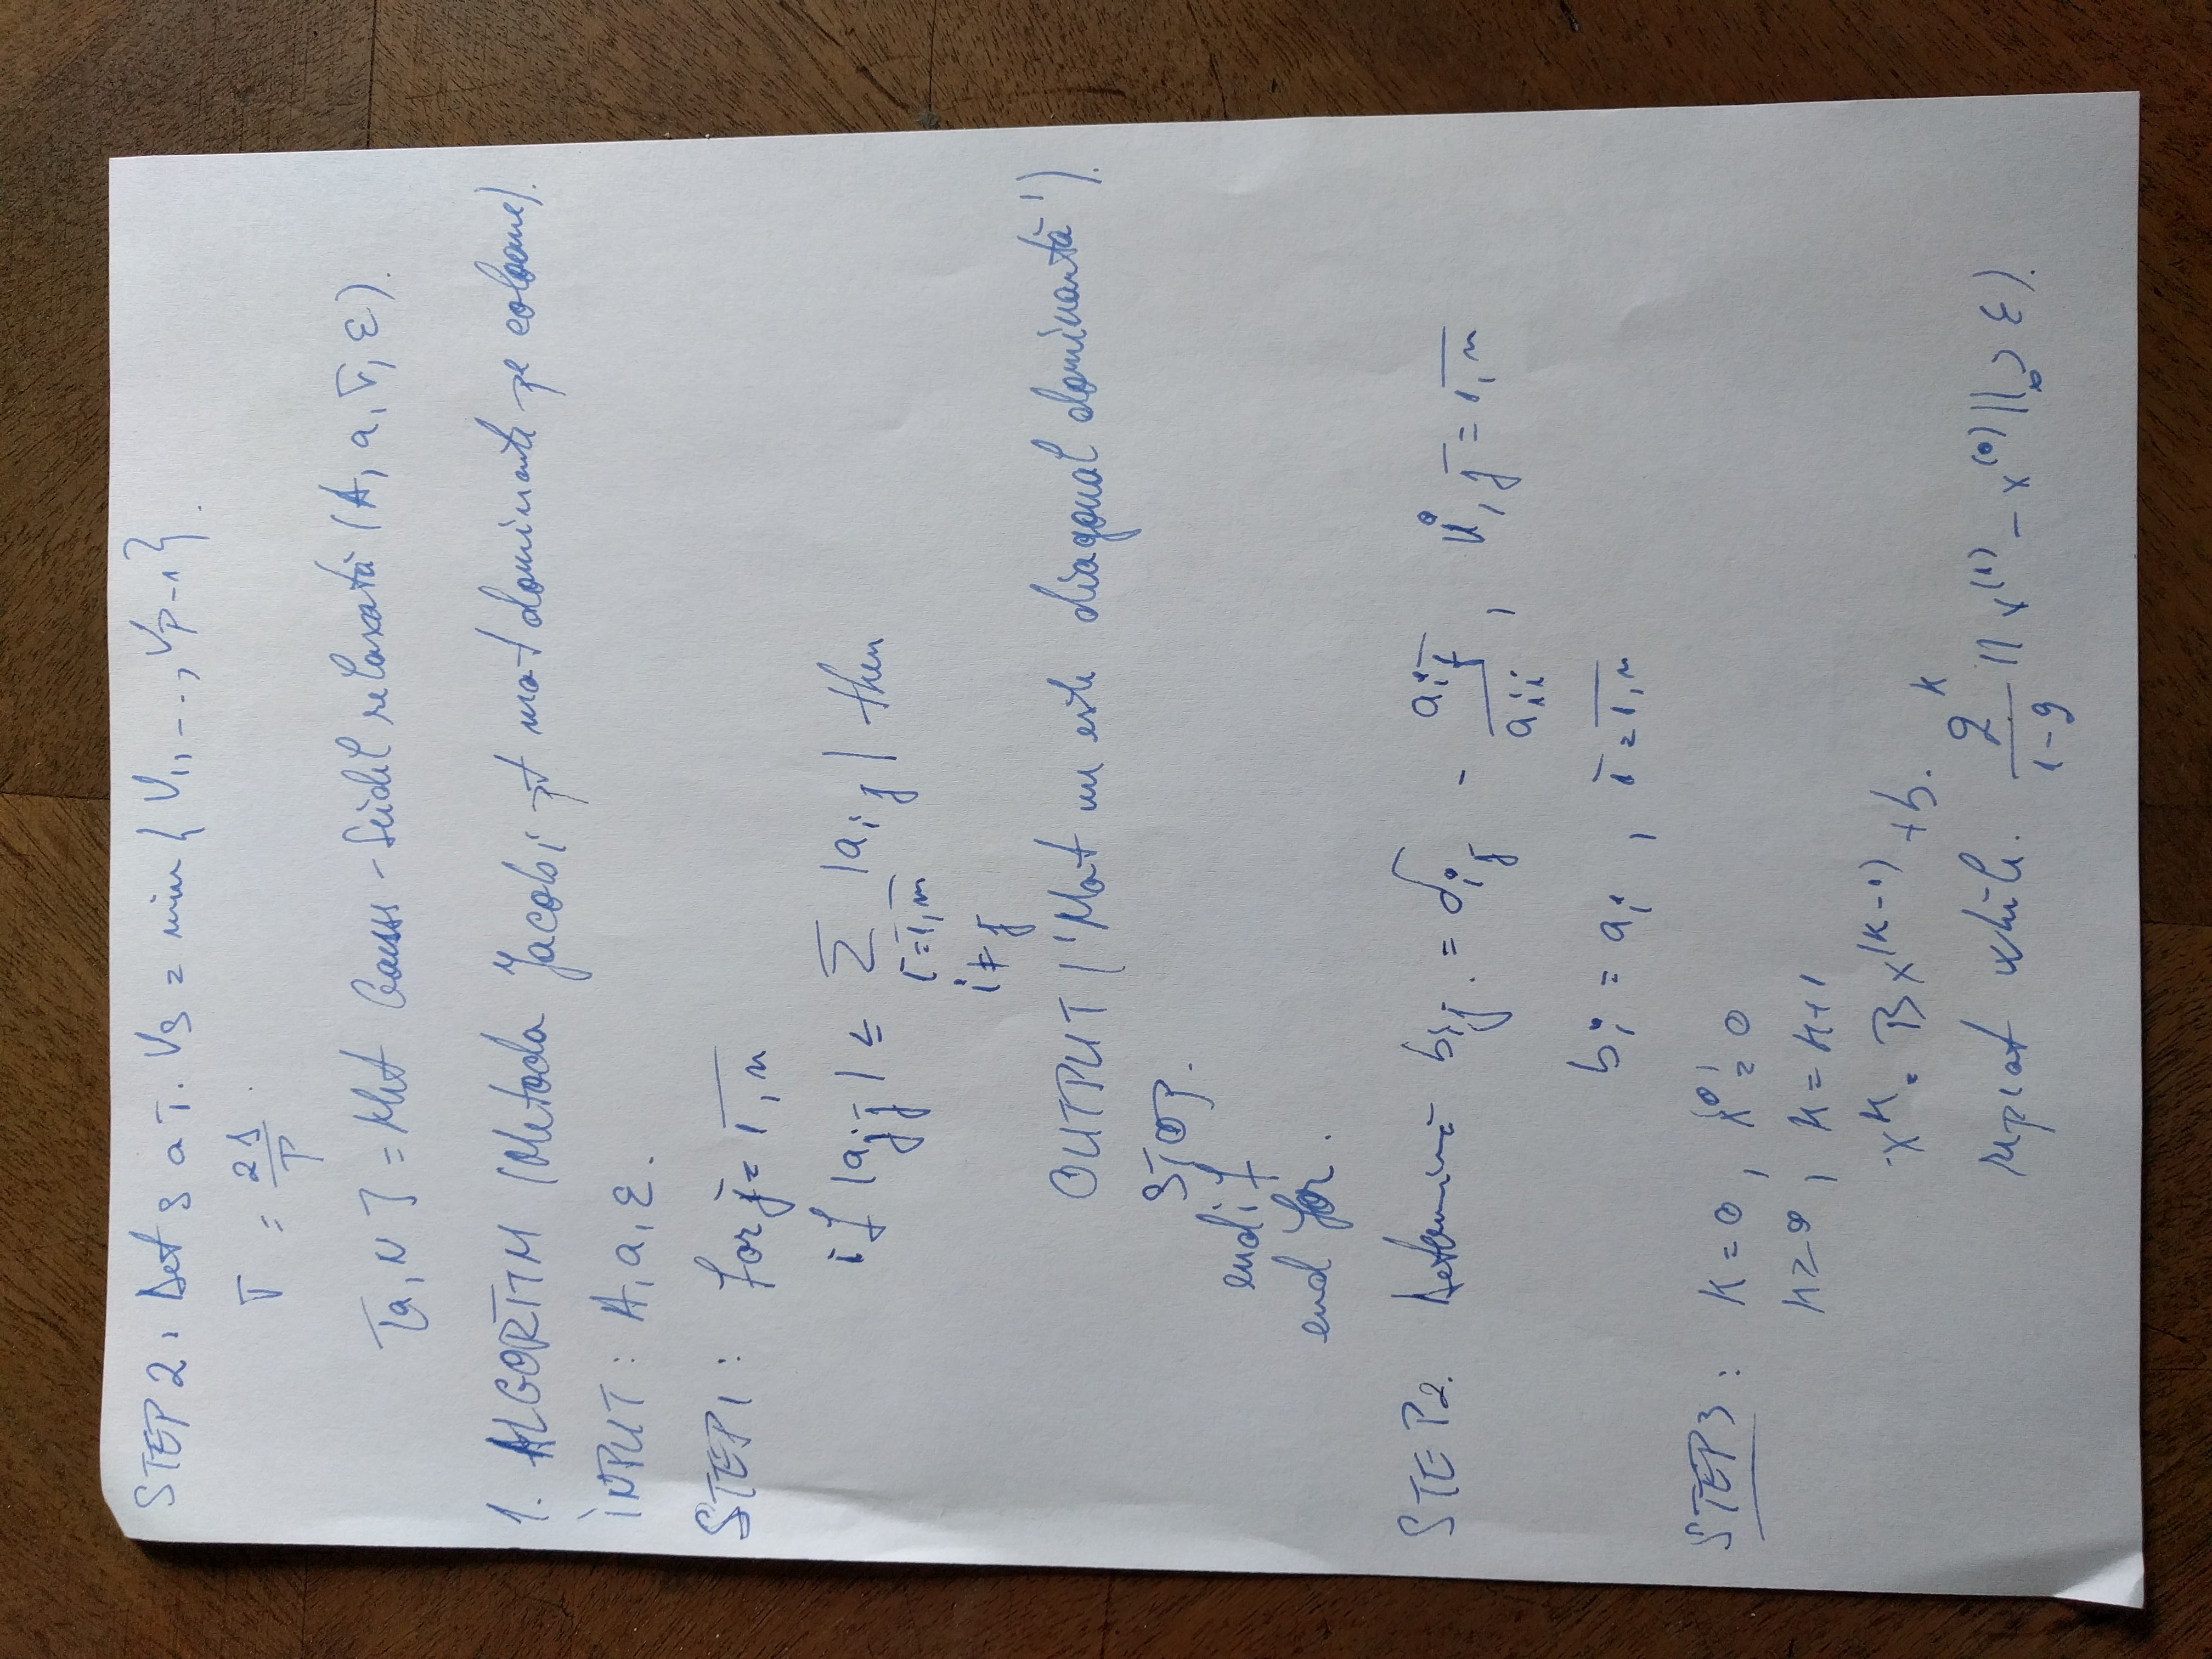 STEP 2. Det s a.î. Vs = min {V1, ..., Vp-1}.
σ = 2s/p.
[a, N] = Met Gauss-Seidel relaxată (A, a, σ, ε).
1. ALGORITM (Metoda Jacobi pt mat dominante pe coloane).
INPUT: A, a, ε.
STEP 1: for j = 1,n
if |ajj| ≤ Σ |aij| then
i=1,n
i≠j
OUTPUT ('Mat nu este diagonal dominantă').
STOP.
endif
end for.
STEP 2. Determină bij = δij - aij/aii, i,j = 1,n
bi = ai, i = 1,n
STEP 3: k = 0, x⁰ = 0
k = k+1
x^k = Bx^(k-1) + b.
repeat while. q^k/(1-q) ||x^(1) - x^(0)||∞ > ε).